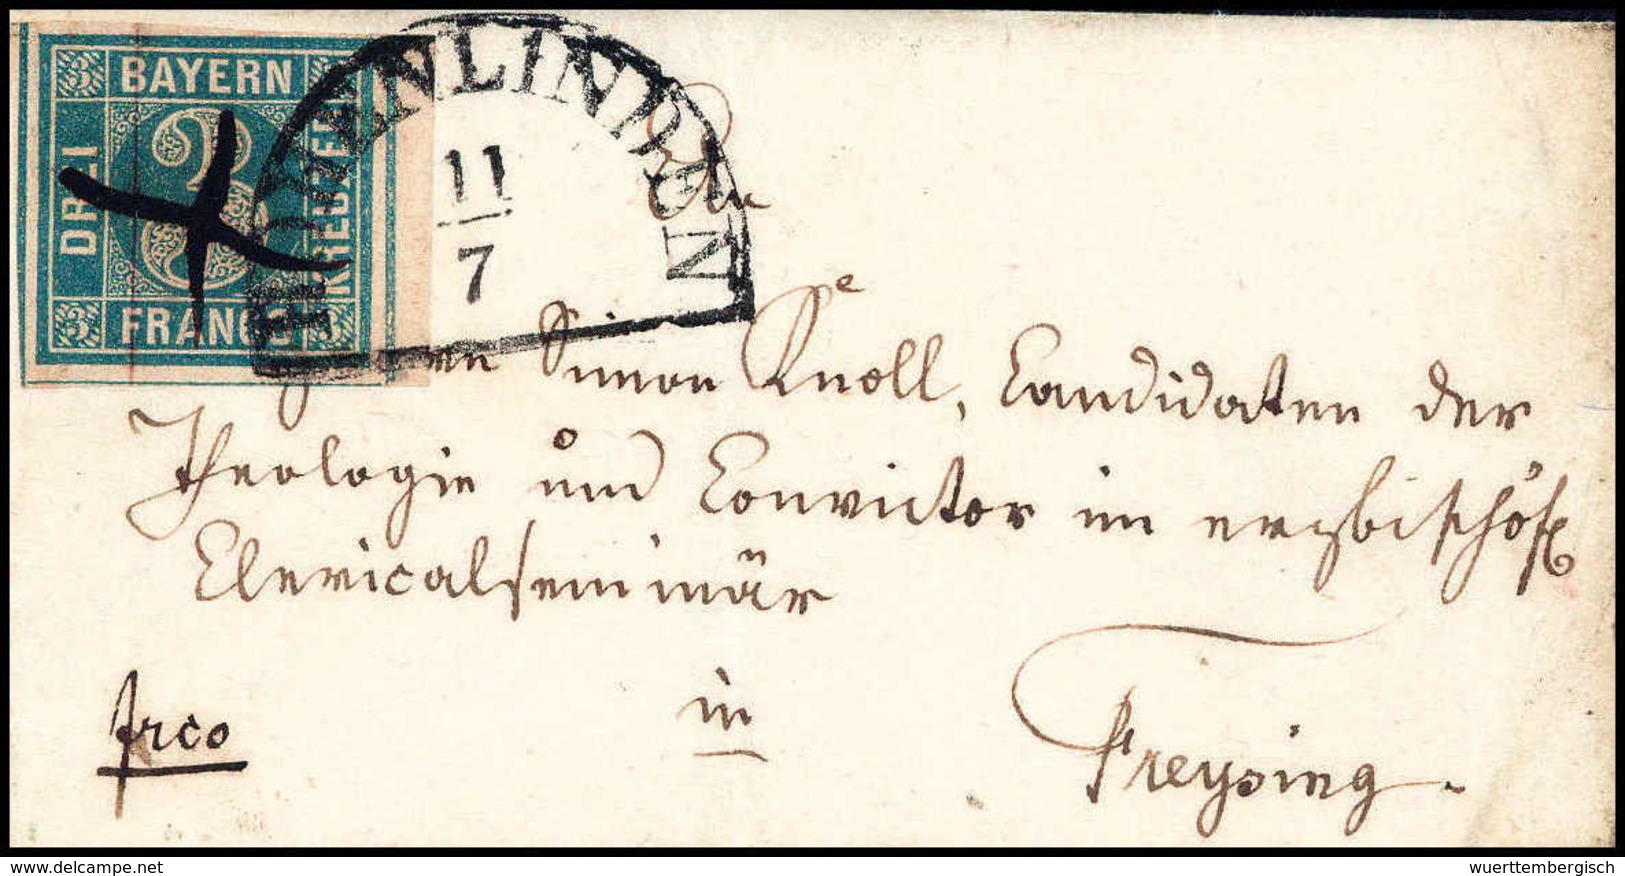 BAYERN
DREI
KREUZER
FRANCO
3
3
3
3
3
HOHENLINDEN
11
7
An
Simon Knoll, Candidaten der
Theologie und Convictor im erzbischöfl
Clericalseminär
frco
in
Freysing.
wuerttembergisch